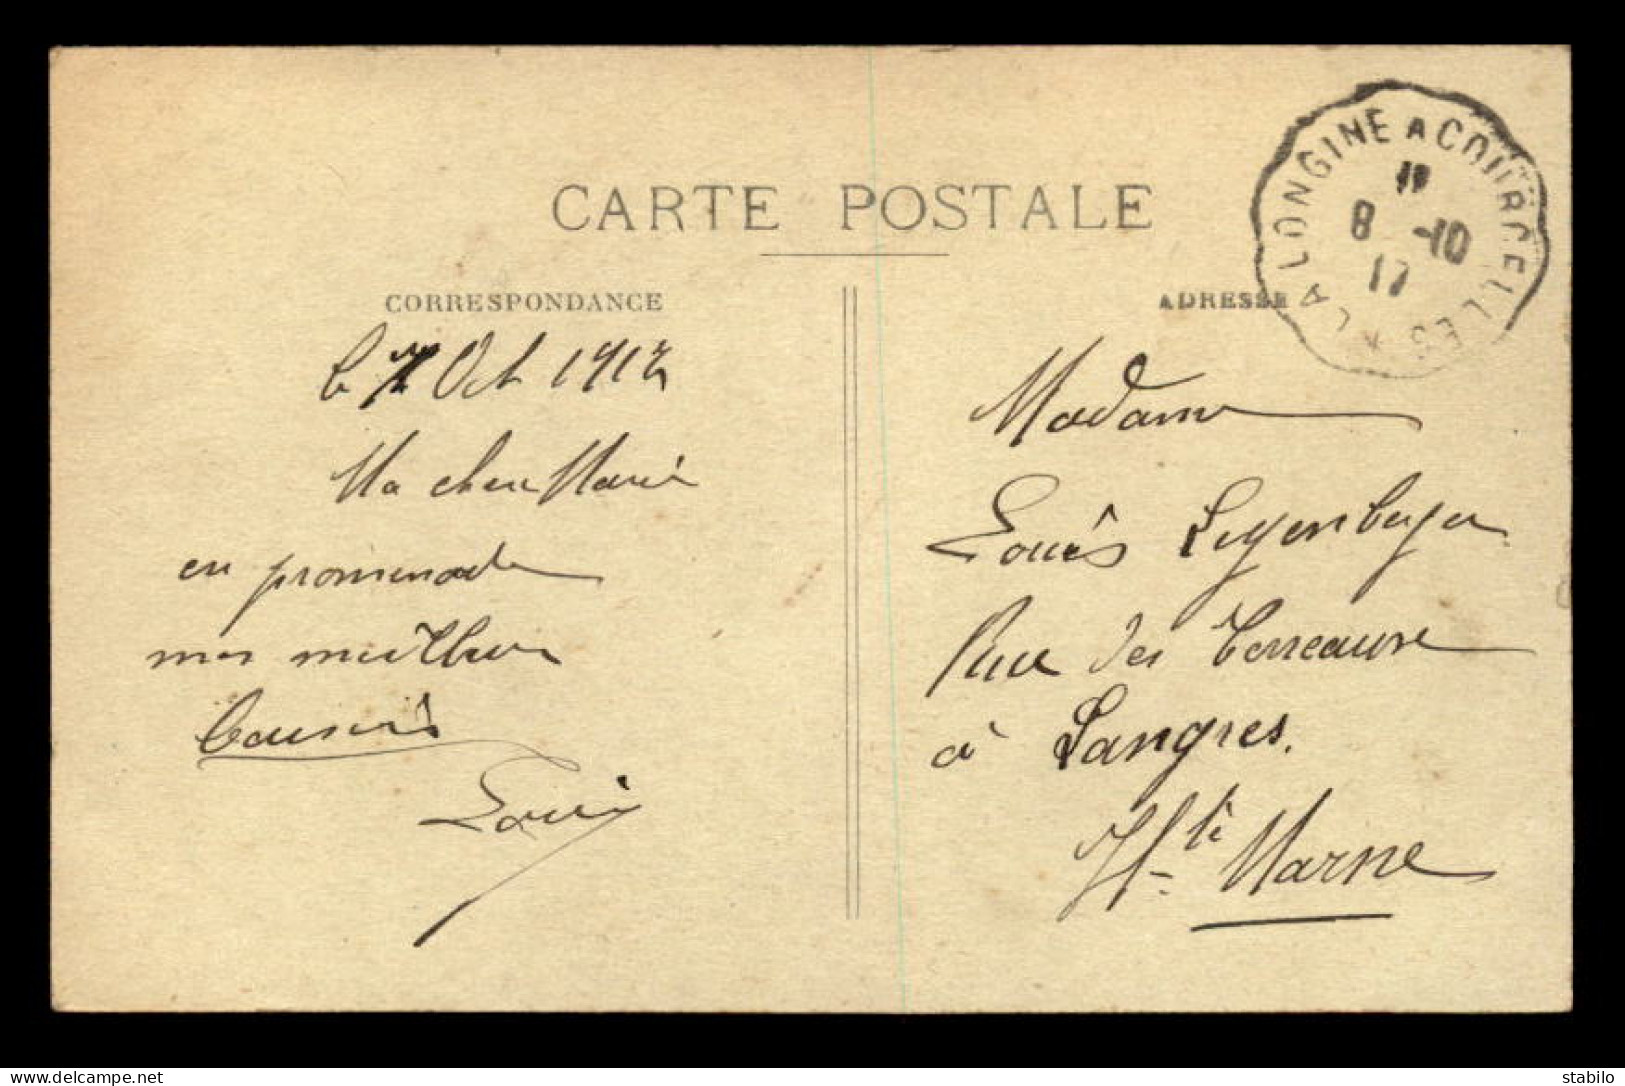 CARTE POSTALE
CORRESPONDANCE
ADRESSE
LA LONGINE A COURCELLES *
8 -10
17
le 7 Oct 1917
Ma chere Marie
en promenade
mes meilleurs
baisers
Louis
Madame
Louis
Rue des Terreaux
à Langres.
Hte Marne
delcampe.net
stabilo